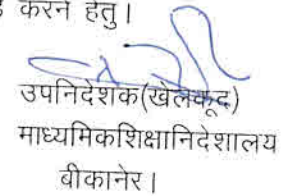 करने हेतु।
उपनिदेशक(खेलकूद)
माध्यमिकशिक्षानिदेशालय
बीकानेर।